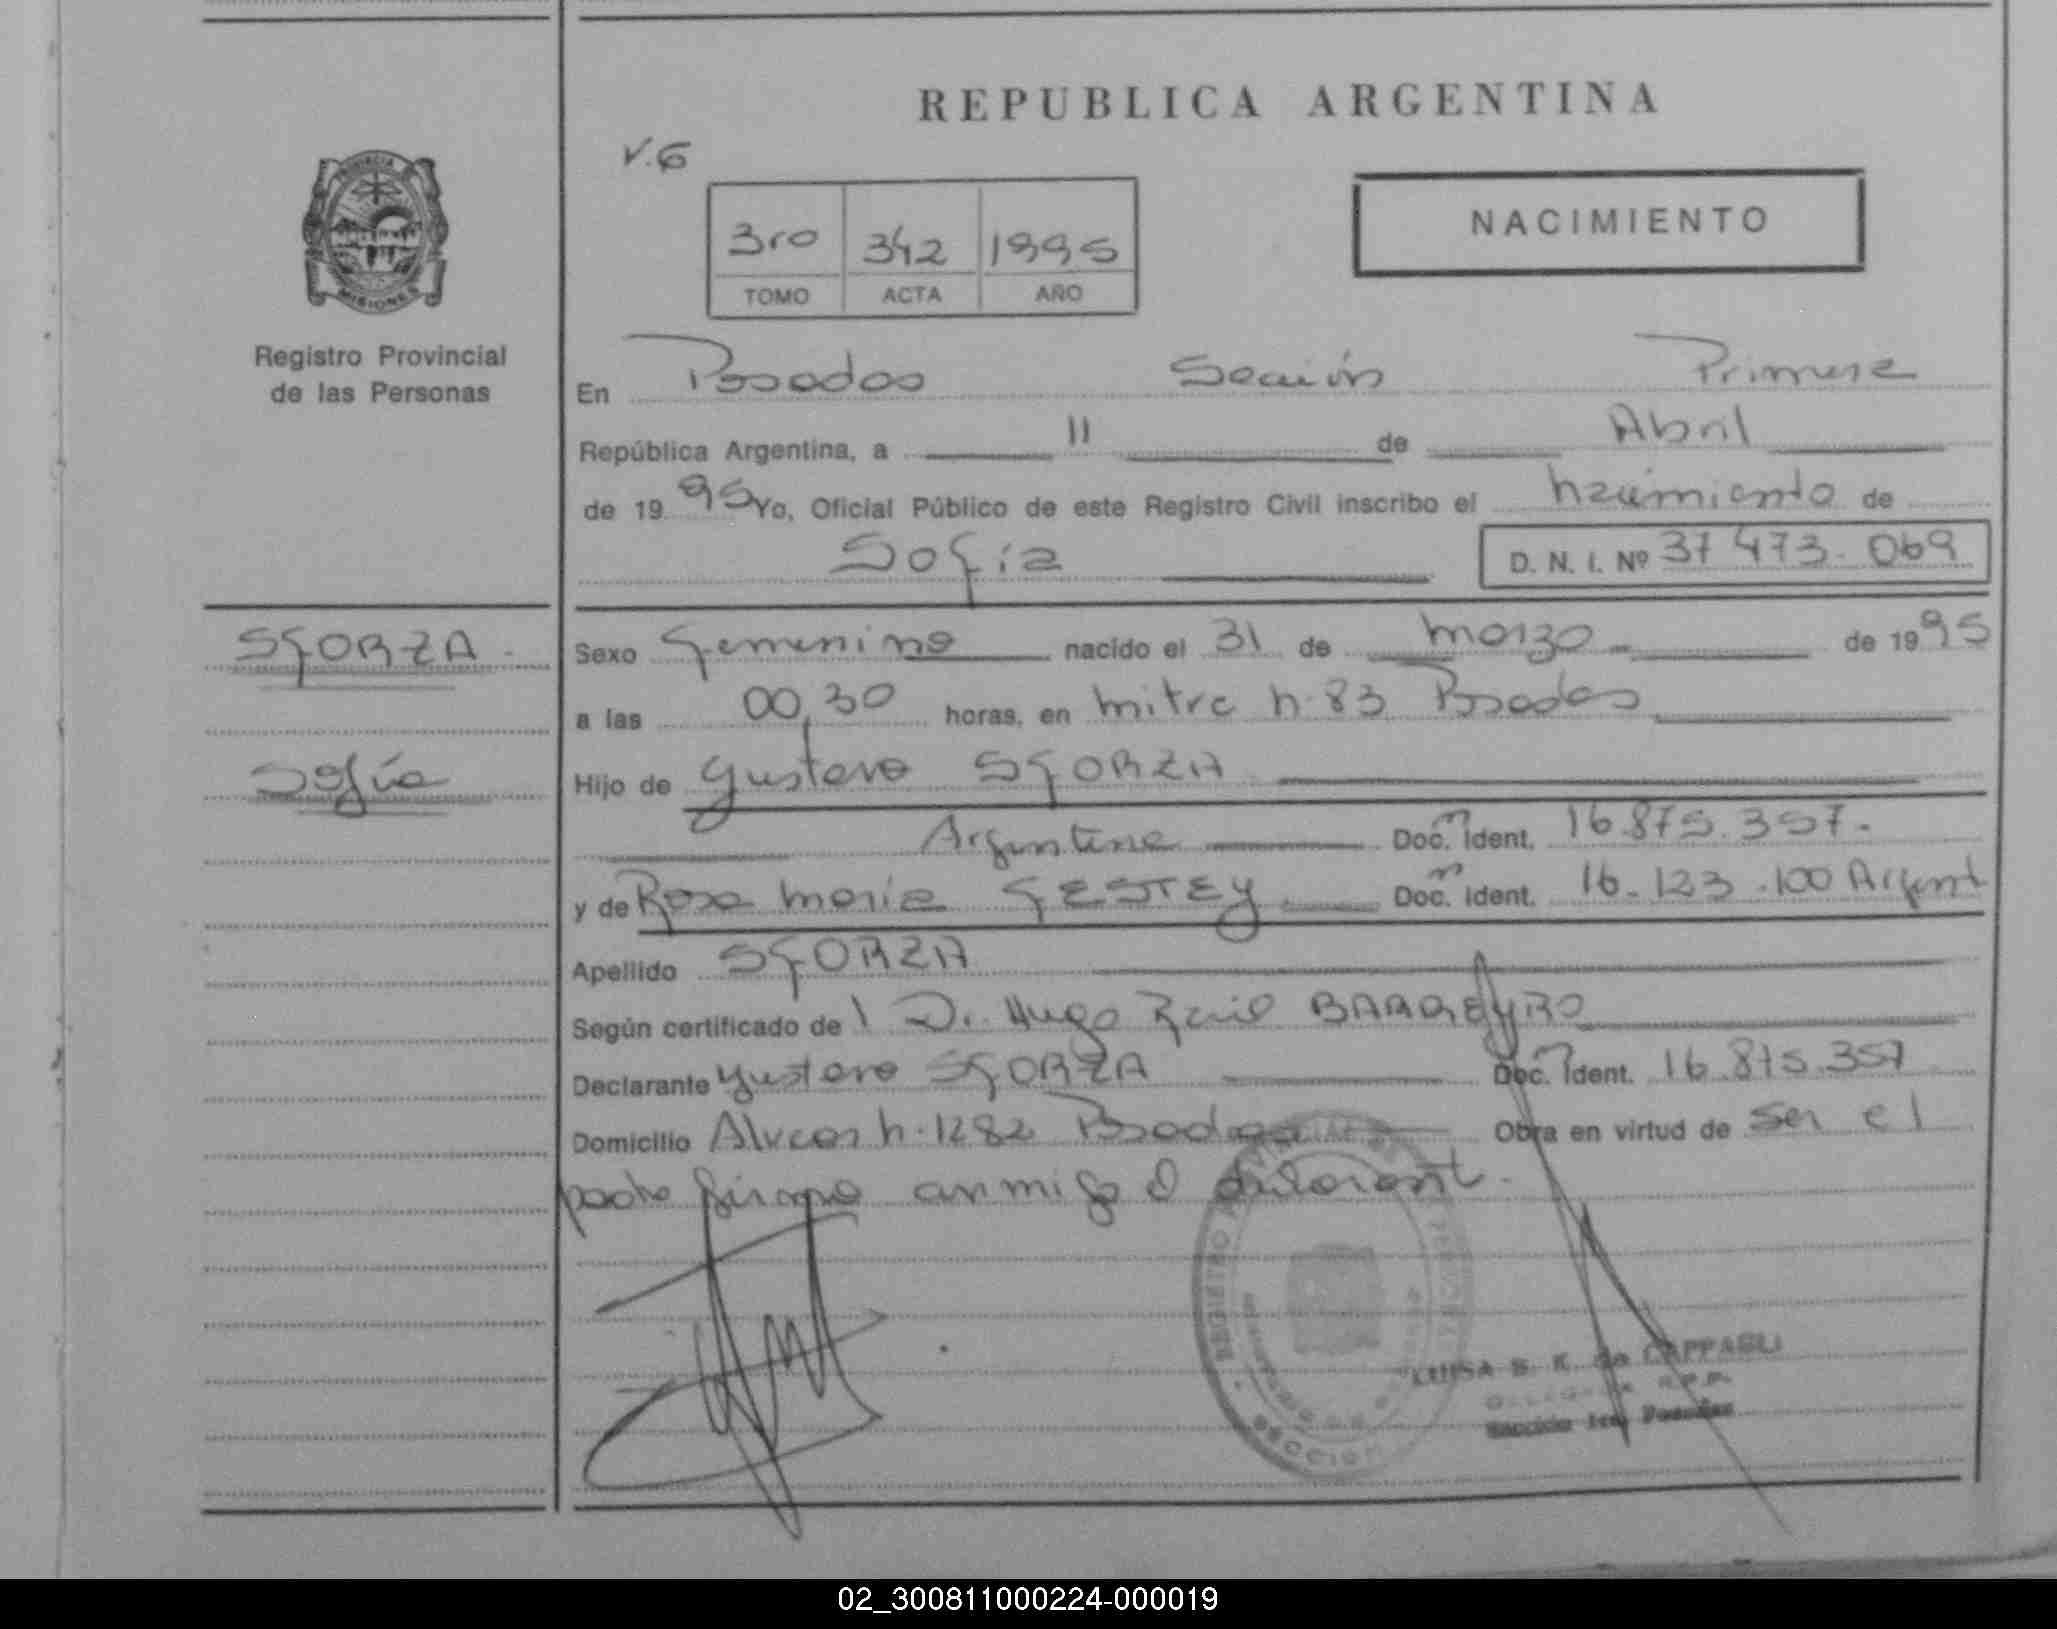 REPUBLICA ARGENTINA
V.6
NACIMIENTO
3ro 342 1995
TOMO ACTA AÑO
PROVINCIA
MISIONES
Registro Provincial
de las Personas
En Posadas Sección Primera
República Argentina, a 11 de Abril
de 1995 Yo, Oficial Público de este Registro Civil inscribo el nacimiento de
Sofia
D. N. I. Nº 37 473.069
SFORZA.
Sofía
Sexo Femenino nacido el 31 de marzo de 1995
a las 00,30 horas, en mitre n.83 Posadas
Hijo de Gustavo SFORZA
Argentina Doc. Ident. 16.875.357.
y de Rosa María FESTEY Doc. Ident. 16.123.100 Argent
Apellido SFORZA
Según certificado de l Dr. Hugo Raúl BARREYRO
Declarante Gustavo SFORZA Doc. Ident. 16.875.357
Domicilio Alvear n.1282 Posadas Obra en virtud de ser el
padre firma conmigo el
LUISA B. K. de CAPPAGLI
R.P.P.
Sección 1ra Posadas
SECCION
02_300811000224-000019